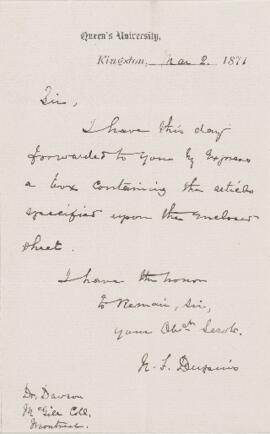 Queen's University,
Kingston, Mar 2. 1871
Sir,
I have this day
forwarded to you by Express
a box containing the articles
specified upon the enclosed
sheet.
I have the honor
to Remain, Sir,
your Obdt Servt.
N. F. Dupuis
Dr. Dawson
McGill Coll.
Montreal.